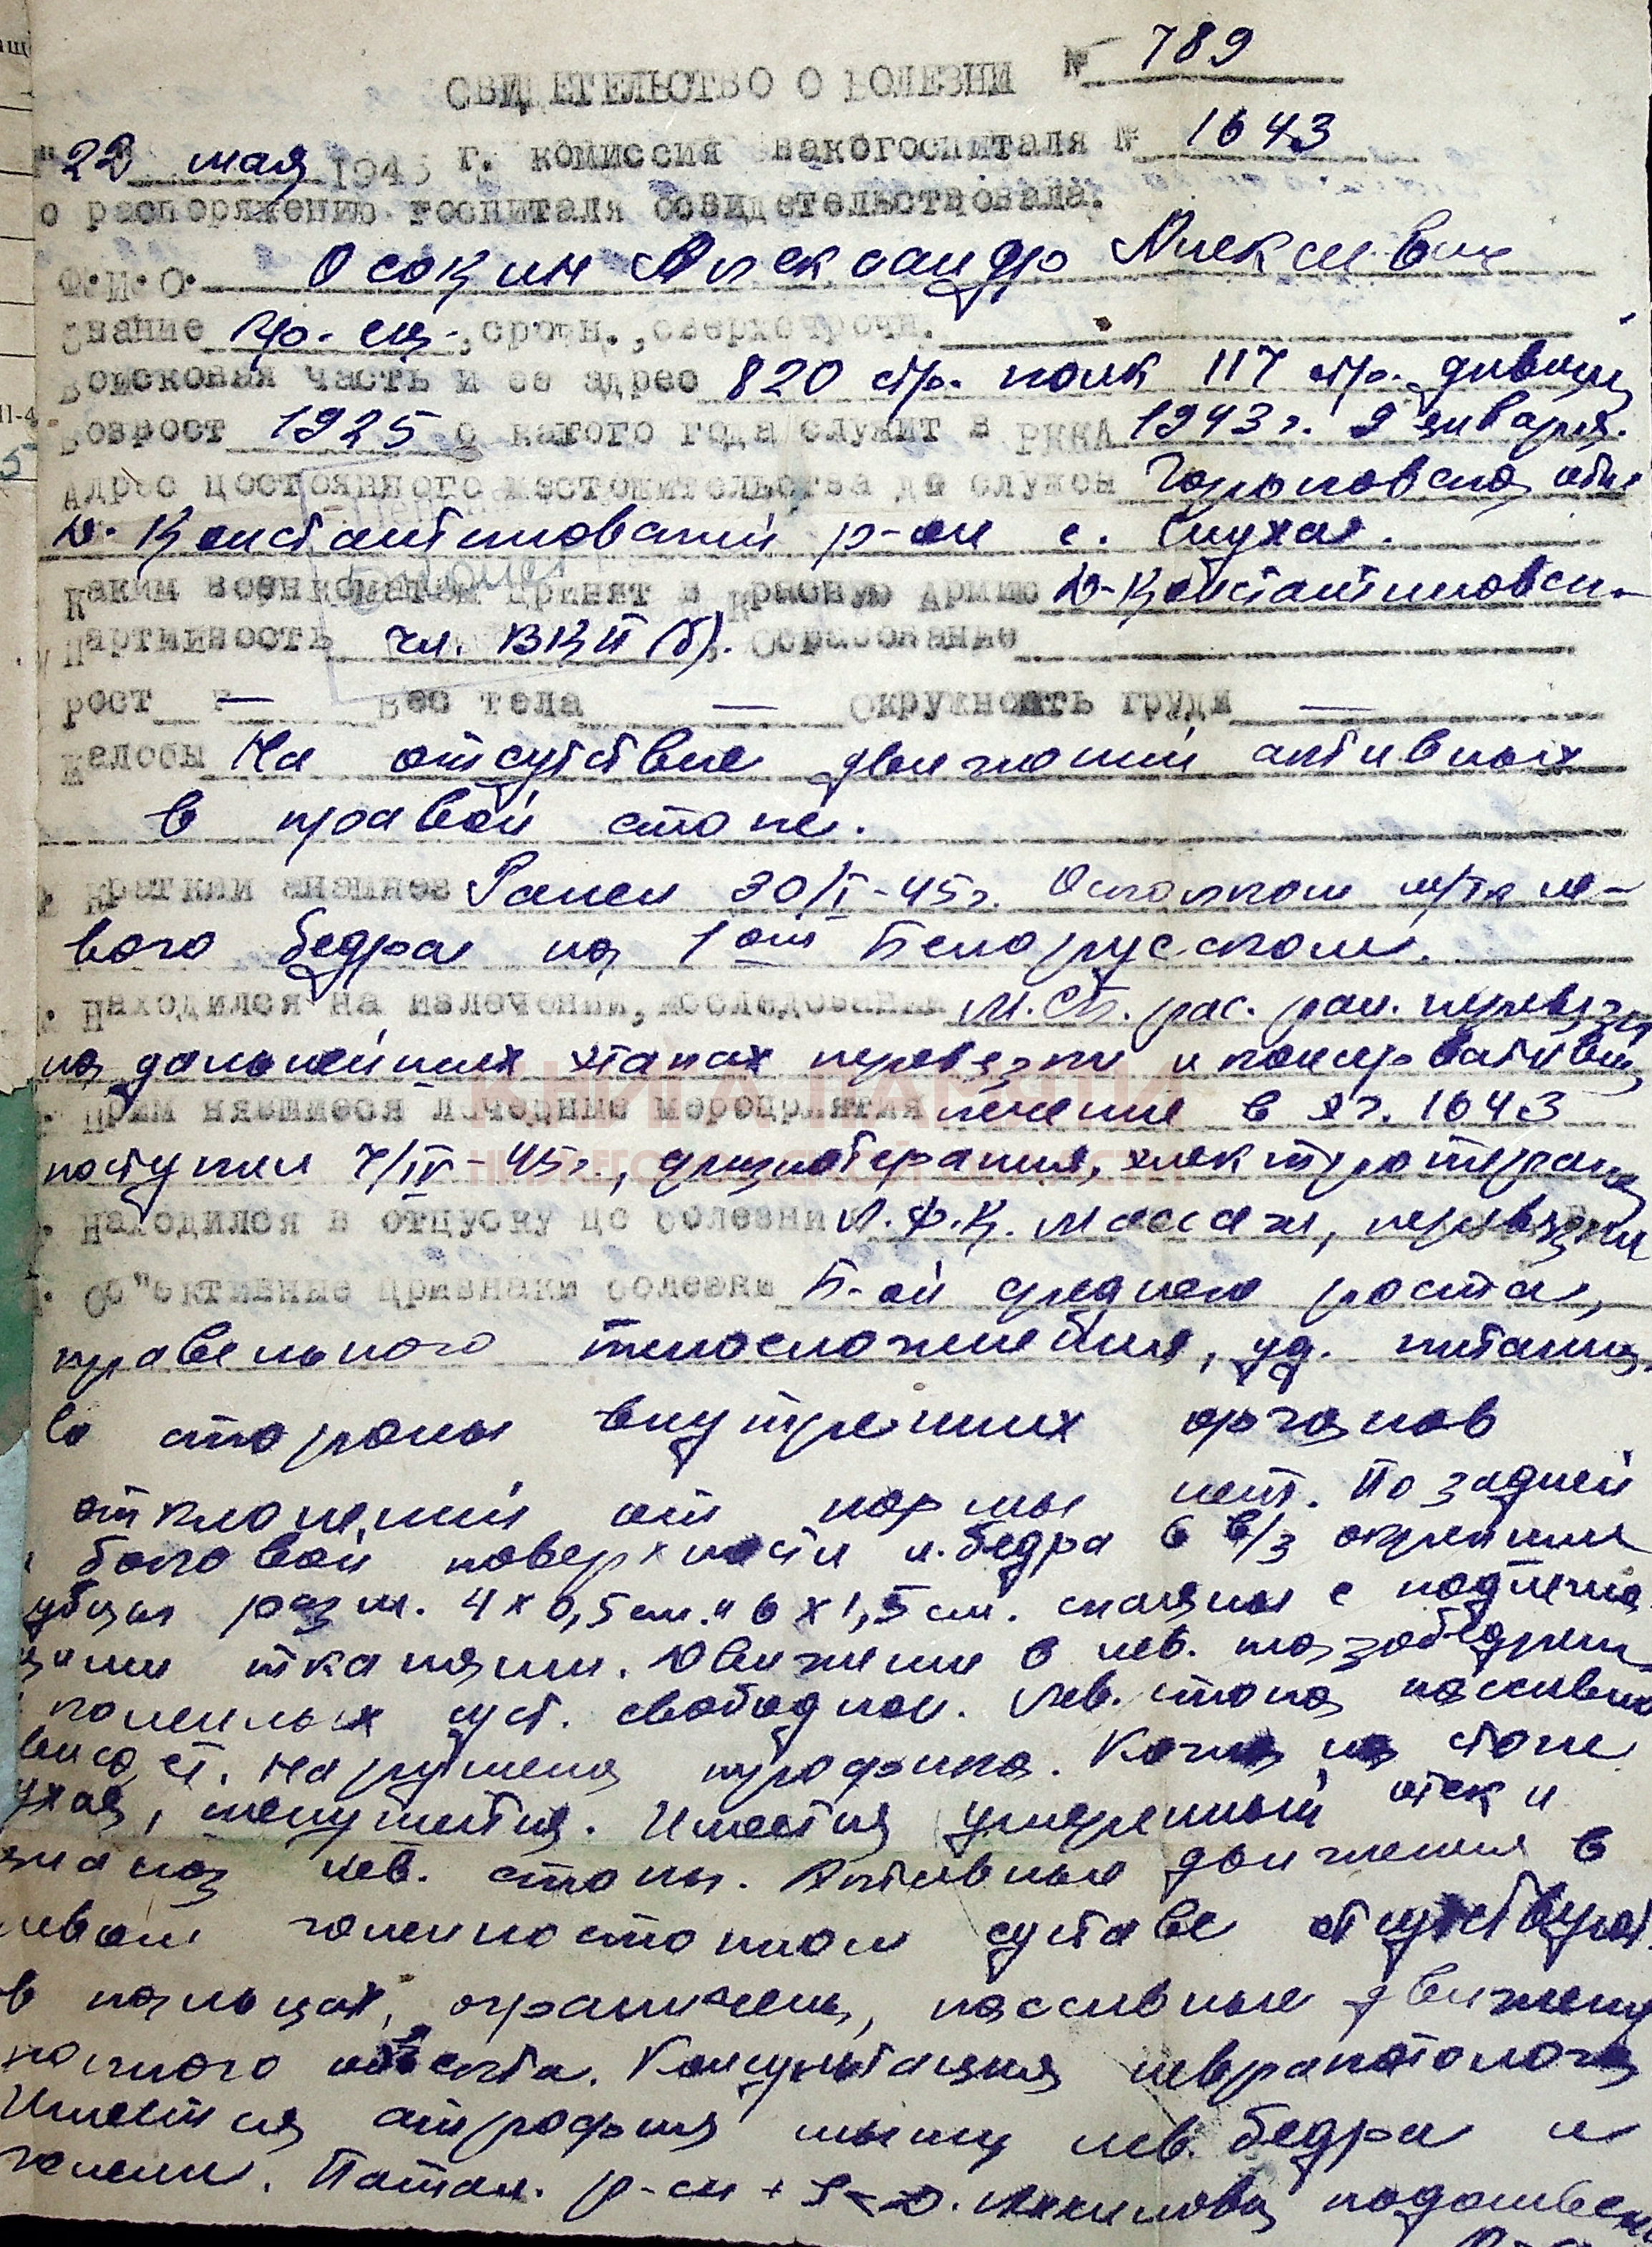 СВИДЕТЕЛЬСТВО О БОЛЕЗНИ № 789
"22 мая 1945 г. комиссия эвакогоспиталя № 1643
о распоряжению госпиталя освидетельствовала.
Ф.И.О. Осокин Александр Алексеевич
Звание гв. , срочн., сверхсрочн.
Войсковая часть и ее адрес 820 стр. полк 117 стр. дивизии
Возраст 1925 с какого года служит в РККА 1943 г. 9 января.
Адрес постоянного местожительства до службы Горьковская обл
Д. Константиновский р-он с.
Каким военкоматом принят в Красную Армию Д-Константиновск.
Партийность чл. ВКП(б). Образование
Рост — Вес тела — Окружность груди —
Жалобы На отсутствие движений активных
в правой стопе.
Краткий анамнез Ранен 30/I-45г. Осколком м/тк ле-
вого бедра на 1ом Белорусском.
Находился на излечении, исследовании М.СБ. рас. ран. перевязки
на дальнейших этапах перевязки и консервативн
Применявшиеся лечебные мероприятия лечение в эг. 1643
поступил 7/IV-45г., физиотерапия, электротерапия
Находился в отпуску по болезни Л.Ф.К. Массаж, перевязки
Об"ективные признаки болезни Б-ой среднего роста,
правельного телосложения, уд. питания.
Со стороны внутренних органов
отклонений от нормы нет. По задней
боковой поверхности л. бедра в в/3 окрепшие
рубцы разм. 4х0,5см. и 6х1,5см. спаяны с подлежа
щими тканями. Движения в лев. тазобедрен
коленных суст. свободное. Лев. стопа пассивно
висает. Нарушена трофика. Кожа на стопе
ухая, шелушится. Имеется умеренный отек и
цианоз лев. стопы. Активные движения в
левом голеностопном суставе отсутствуют
в пальцах, ограничены, пассивные движения
полного объема. Консультация невропатолога
Имеется атрофия мышц лев. бедра и
голени. Патол. р-см + Ахиллова подошвен